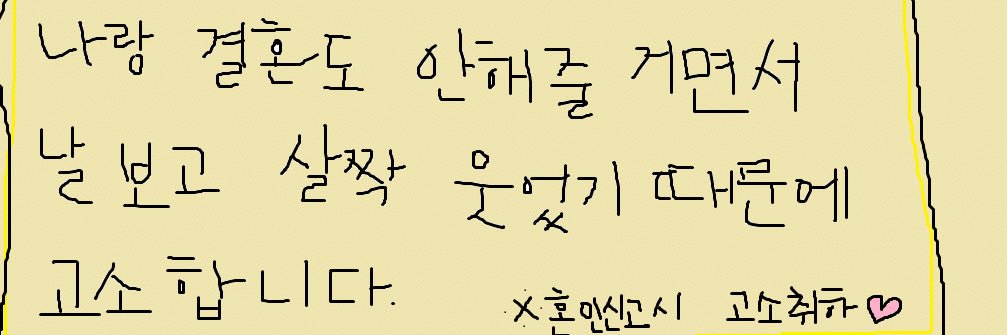 나랑 결혼도 안해줄 거면서
날 보고 살짝 웃었기 때문에
고소합니다.
x혼인신고시 고소취하♡